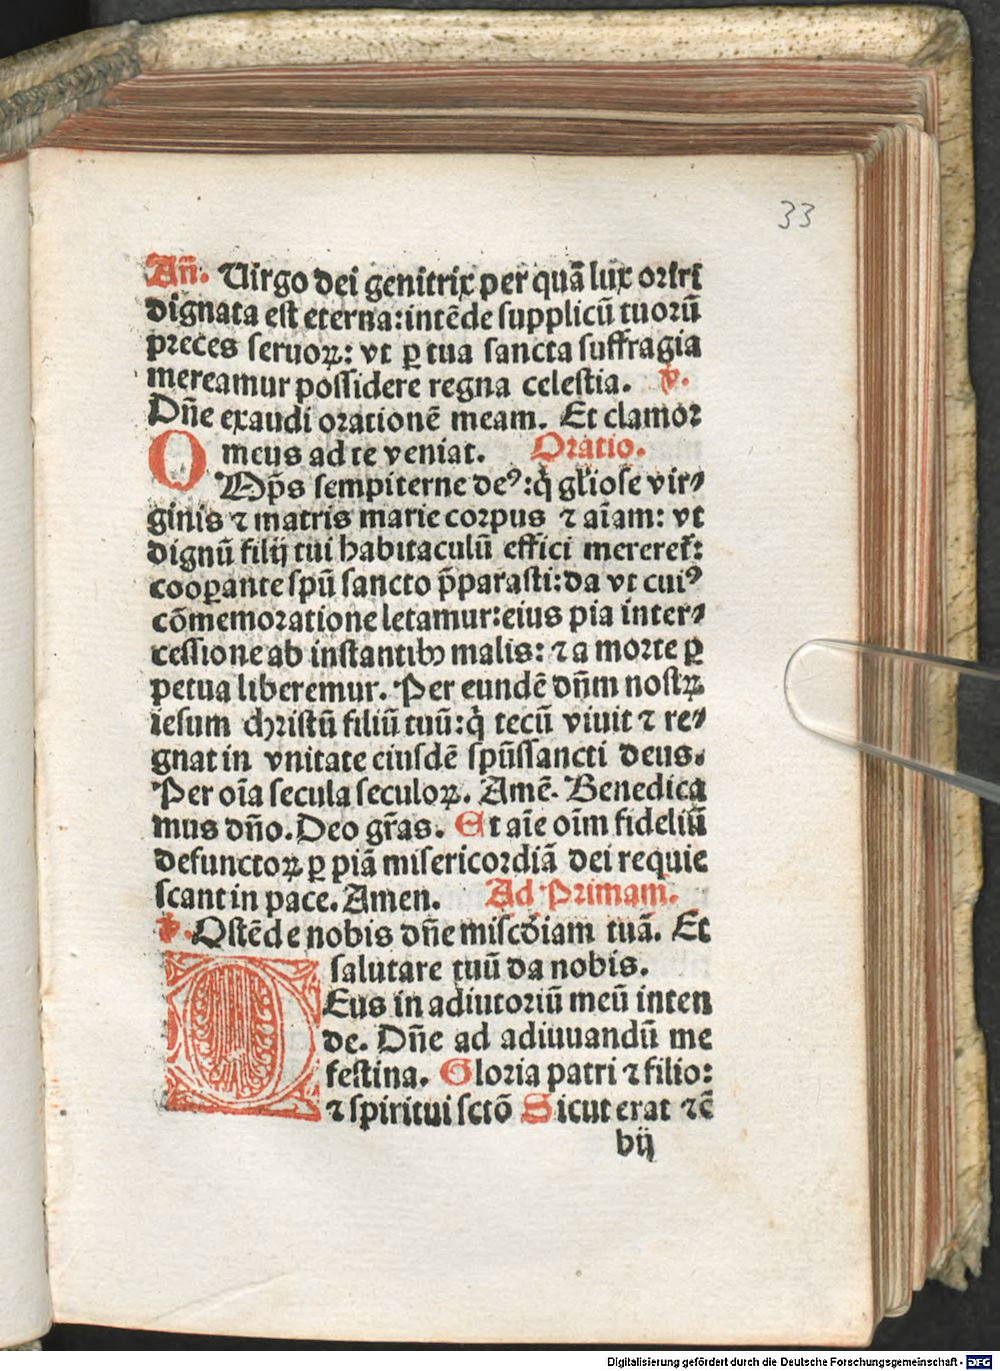 33
An̄. Uirgo dei genitrix per quā lux oriri
dignata est eterna:intēde supplicū tuorū
preces seruoꝝ: vt ꝑ tua sancta suffragia
mereamur possidere regna celestia. ℣.
Dn̄e exaudi orationē meam. Et clamor
meus ad te veniat. Oratio.
OMp̄s sempiterne deꝰ:q̇ gl̄iose vir⸗
ginis ⁊ matris marie corpus ⁊ aīam: vt
dignū filij tui habitaculū effici mereret̄:
cooꝑante spū sancto p̄parasti:da vt cuiꝰ
cōmemoratione letamur:eius pia inter⸗
cessione ab instantibꝫ malis: ⁊ a morte ꝑ
petua liberemur. Per eundē dn̄m nostꝝ
iesum christū filiū tuū:q̇ tecū viuit ⁊ re⸗
gnat in vnitate eiusdē spūssancti deus.
Per oīa secula seculoꝝ. Amē. Benedica
mus dn̄o. Deo gr̄as. Et aīe oīm fideliū
defunctoꝝ ꝑ piā misericordiā dei requie
scant in pace. Amen. Ad Primam.
℣. Ostēde nobis dn̄e misc̄diam tuā. Et
salutare tuū da nobis.
DEus in adiutoriū meū inten
de. Dn̄e ad adiuuandū me
festina. Gloria patri ⁊ filio:
⁊ spiritui sctō Sicut erat ⁊c̄
bij
Digitalisierung gefördert durch die Deutsche Forschungsgemeinschaft - DFG